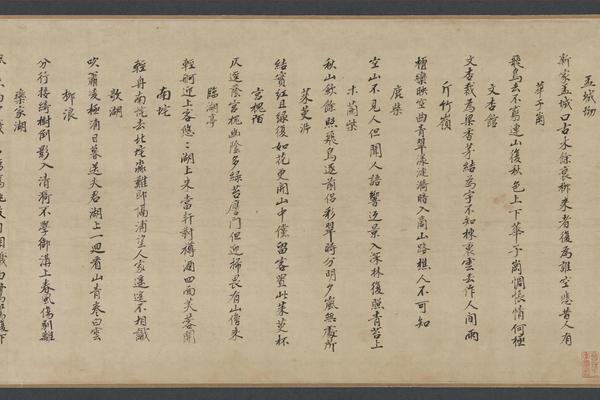 孟城坳
新家孟城口古木餘衰柳來者復為誰空悲昔人有
華子崗
飛鳥去不窮連山復秋色上下華子崗惆悵情何極
文杏館
文杏裁為梁香茅結為宇不知棟裏雲去作人間雨
斤竹嶺
檀欒映空曲青翠漾漣漪暗入商山路樵人不可知
鹿柴
空山不見人但聞人語響返景入深林復照青苔上
木蘭柴
秋山斂餘照飛鳥逐前侶彩翠時分明夕嵐無處所
茱萸沜
結實紅且綠復如花更開山中儻留客置此茱萸杯
宮槐陌
仄逕蔭宮槐幽陰多綠苔應門但迎掃畏有山僧來
臨湖亭
輕舸迎上客悠〻湖上來當軒對樽酒四面芙蓉開
南垞
輕舟南垞去北垞淼難即隔浦望人家遙遙不相識
欹湖
吹簫凌極浦日暮送夫君湖上一迴看山青卷白雲
柳浪
分行接綺樹倒影入清漪不學御溝上春風傷別離
欒家湖